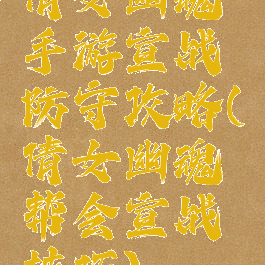 倩女幽魂
手游宣战
防守攻略(
倩女幽魂
帮会宣战
技巧)